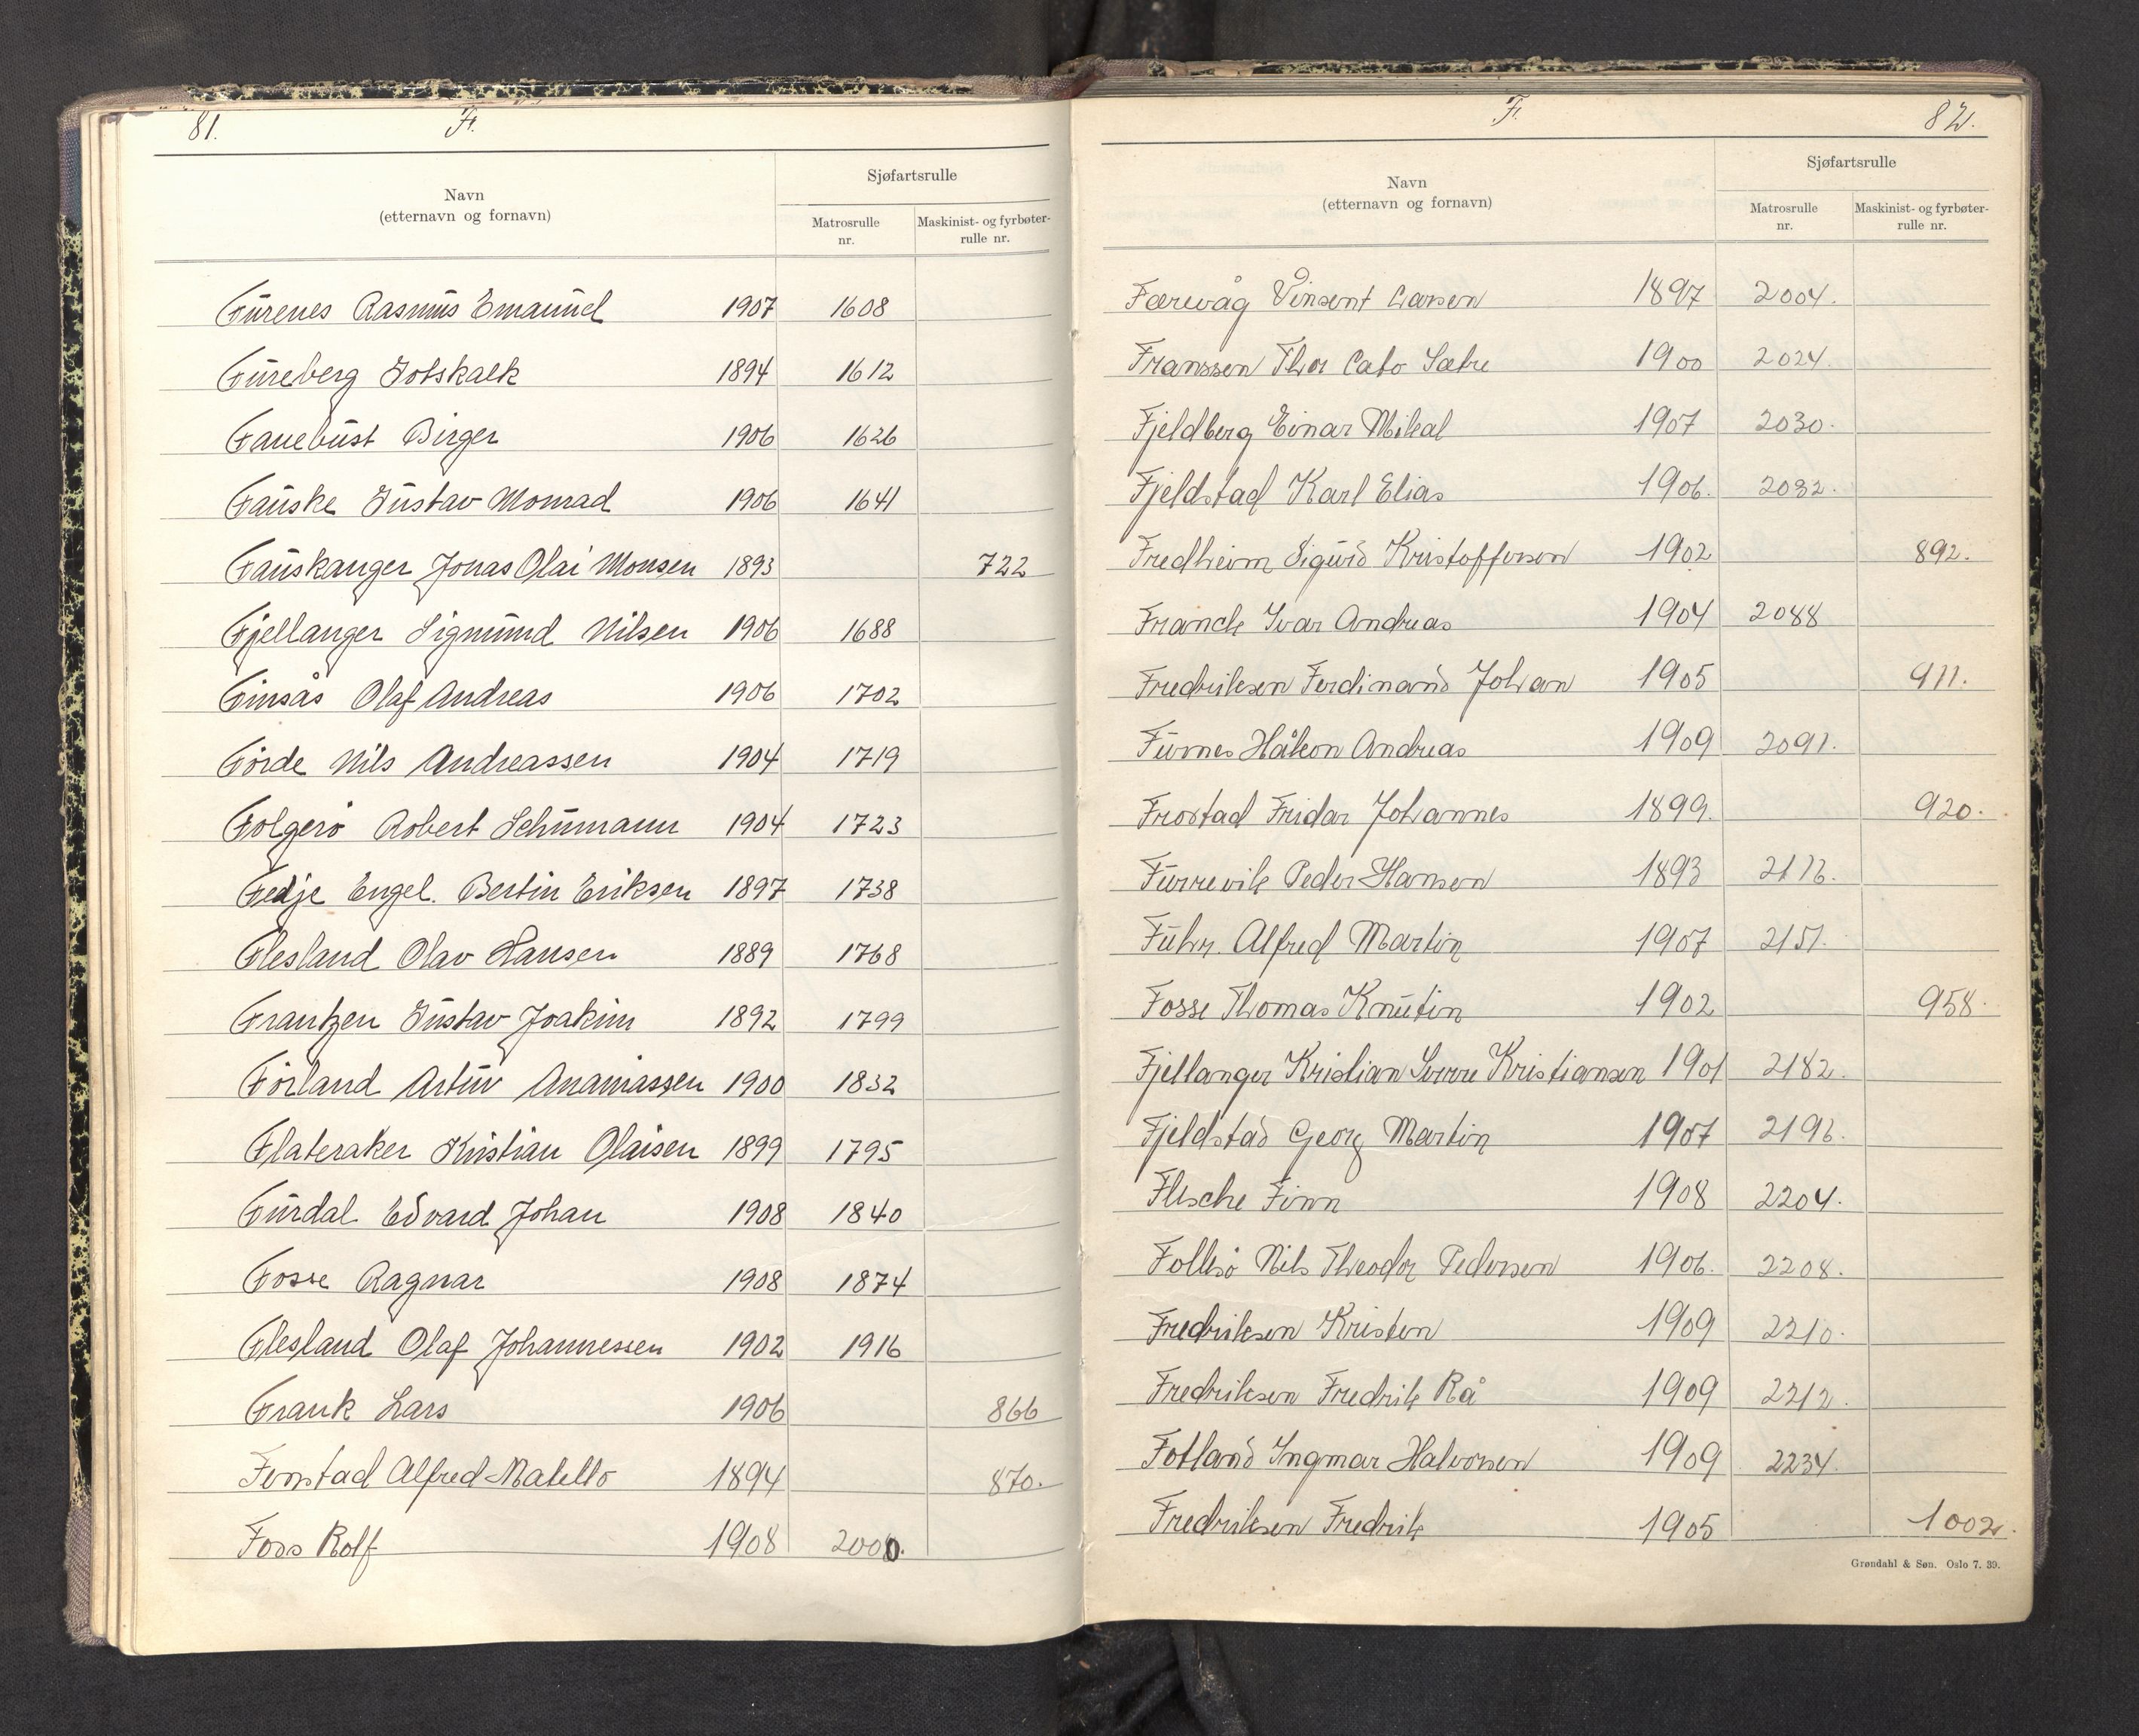 81. F.
Sjøfartsrulle
Navn
(etternavn og fornavn)
Matrosrulle nr.
Maskinist- og fyrbøter-rulle nr.
Furenes Rasmus Emanuel 1907 1608
Fureberg Gotskalk 1894 1612
Fanebust Birger 1906 1626
Fauske Gustav Monrad 1906 1641
Fauskanger Jonas Olai Monsen 1893 722
Fjellanger Sigmund Nilsen 1906 1688
Finsås Olaf Andreas 1906 1702
Förde Nils Andreassen 1904 1719
Folgerö Robert Schumann 1904 1723
Fedje Engel. Bertin Eriksen 1897 1738
Flesland Olav Hansen 1889 1768
Frantzen Gustav Joakim 1892 1799
Förland Artur Ananiassen 1900 1832
Flateraker Kristian Olaisen 1899 1795
Furdal Edvard Johan 1908 1840
Fosse Ragnar 1908 1874
Flesland Olaf Johannessen 1902 1916
Frank Lars 1906 866
Fenstad Alfred Matello 1894 870.
Foss Rolf 1908 2000.
F. 82.
Sjøfartsrulle
Navn
(etternavn og fornavn)
Matrosrulle nr.
Maskinist- og fyrbøter-rulle nr.
Færevåg Vinsent Larsen 1897 2004.
Franssen Thor Cato Sætre 1900 2024.
Fjeldberg Einar Mikal 1907 2030.
Fjeldstad Karl Elias 1906. 2032.
Fredheim Sigurd Kristoffersen 1902 892.
Franck Ivar Andreas 1904 2088
Fredriksen Ferdinand Johan 1905 911.
Furnes Håkon Andreas 1909 2091.
Frostad Fridar Johannes 1899. 920.
Furrevik Peder Hansen 1893
Fuhr. Alfred Martin 1907 2151.
Fosse Thomas Knutin 1902 958.
Fjellanger Kristian Sverre Kristiansen 1901 2182.
Fjeldstad Georg Martin 1907 2196.
Flesche Finn 1908 2204.
Follesö Nils Theodor Pedersen 1906. 2208.
Fredriksen Kristen 1909 2210.
Fredriksen Fredrik Rå 1909 2212.
Fotland Ingmar Halvorsen 1909 2234.
Fredriksen Fredrik 1905 1002.
Grøndahl & Søn. Oslo 7. 39.